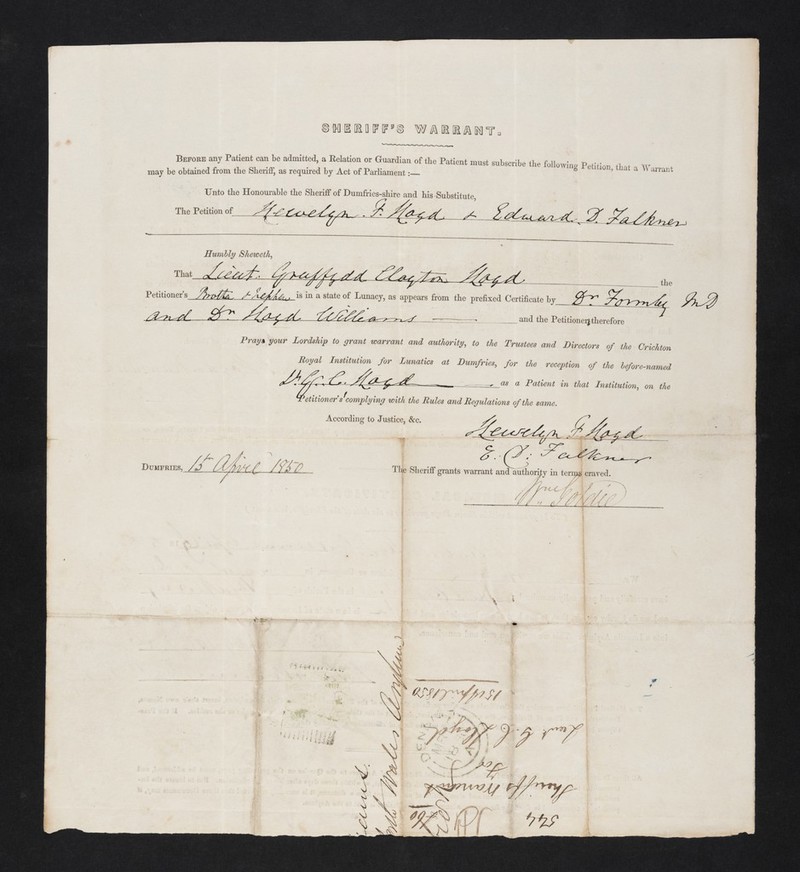 SHERIFF'S WARRANT.
BEFORE any Patient can be admitted, a Relation or Guardian of the Patient must subscribe the following Petition, that a Warrant
may be obtained from the Sheriff, as required by Act of Parliament :—
Unto the Honourable the Sheriff of Dumfries-shire and his Substitute,
The Petition of Llewelyn F. Lloyd & Edward D. Falkner
Humbly Sheweth,
That Lieut. Gruffydd Clayton Lloyd the
Petitioner's Brother & is in a state of Lunacy, as appears from the prefixed Certificate by Dr Formby MD
and Dr Lloyd Williams — and the Petitioners therefore
Prays your Lordship to grant warrant and authority, to the Trustees and Directors of the Crichton
Royal Institution for Lunatics at Dumfries, for the reception of the before-named
Lt. G. C. Lloyd — as a Patient in that Institution, on the
Petitioner's' complying with the Rules and Regulations of the same.
According to Justice, &c.
Llewelyn F Lloyd
E. D. Falkner
DUMFRIES, 15 April 1850 The Sheriff grants warrant and authority in terms craved.
Wm Goldie
544
Sheriffs Warrant
for
Lieut G. C. Lloyd
15th April 1850
Wales